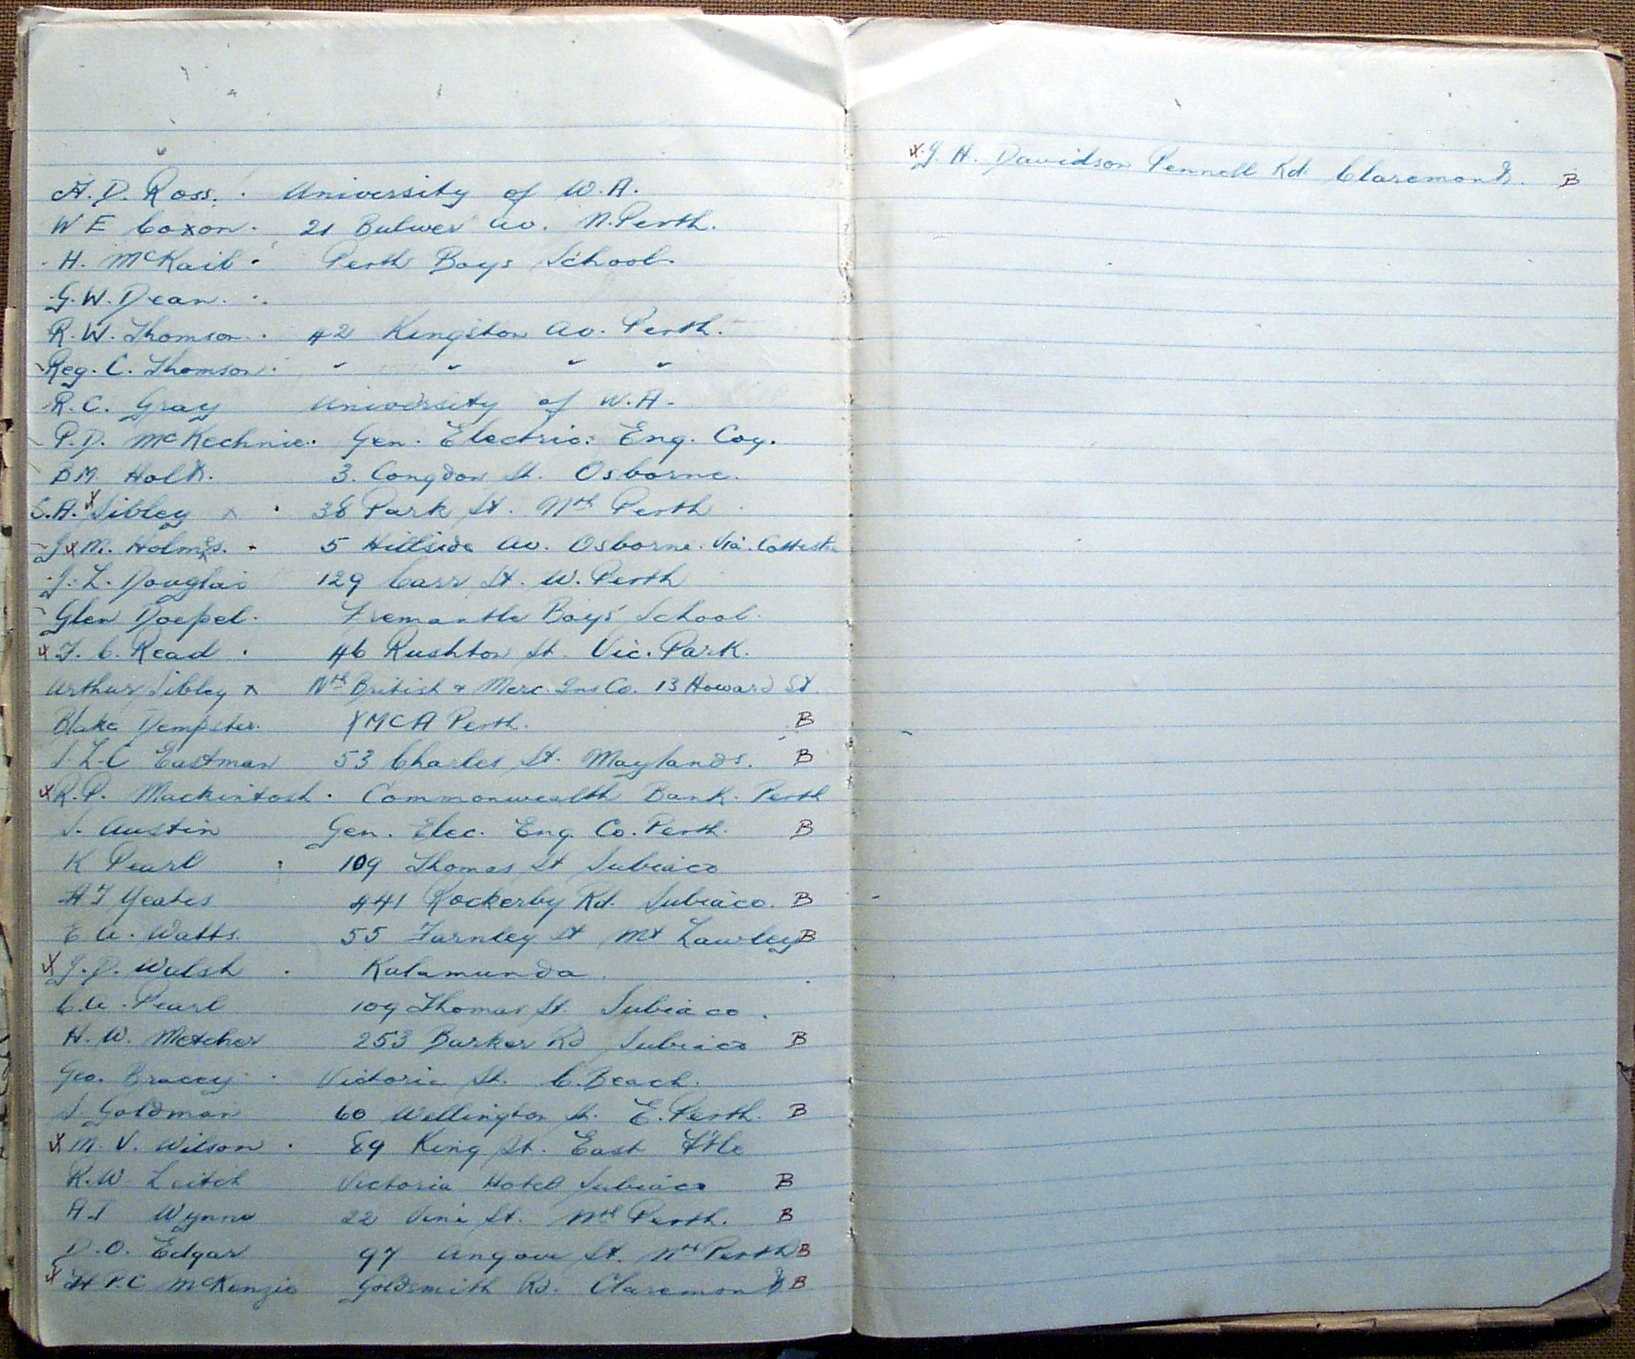 A. D. Ross. University of W.A.
W E Coxon. 21 Bulwer Av. N. Perth.
H. McKail. Perth Boys School.
G. W. Dean.
R. W. Thomson. 42 Kingston Av. Perth.
Reg. C. Thomson. " " " "
R. C. Gray University of W.A.
P. D. McKechnie. Gen. Electric. Eng. Coy.
B M. Holt. 3. Congdon St. Osborne.
S. A. Sibley x 38 Park St. Nth Perth
x M. Holmes. 5 Hillside Av. Osborne. Via. Cottesloe
J. L. Douglas 129 Carr St. W. Perth
Glen Doepel. Fremantle Boys' School.
x F. C. Read. 46 Rushton St. Vic. Park.
Arthur Sibley x Nth British & Merc. Ins Co. 13 Howard St.
Blake Dempster. YMCA Perth. B
L. C Eastman 53 Charles St. Maylands. B
x R. P. Mackintosh. Commonwealth Bank. Perth
Austin Gen. Elec. Eng. Co. Perth. B
K Pearl 109 Thomas St Subiaco
Yeates 441 Rockerby Rd. Subiaco. B
E. A. Watts. 55 Farnley St Mt Lawley B
x J. D. Walsh. Kalamunda.
C. A. Pearl 109 Thomas St. Subiaco.
H. W. Metcher 253 Barker Rd Subiaco B
Geo. Bracey. Victoria St. C. Beach.
Goldman 60 Wellington St. E. Perth. B
x M. V. Wilson. 89 King St. East F'tle
R. W. Leitch Victoria Hotel Subiaco B
Wynne 22 Vine St. Nth Perth. B
D. O. Edgar 97 Angove St. Nth Perth B
x H P. C McKenzie Goldsmith Rd. Claremont B
x J. H. Davidson Pennell Rd. Claremont. B